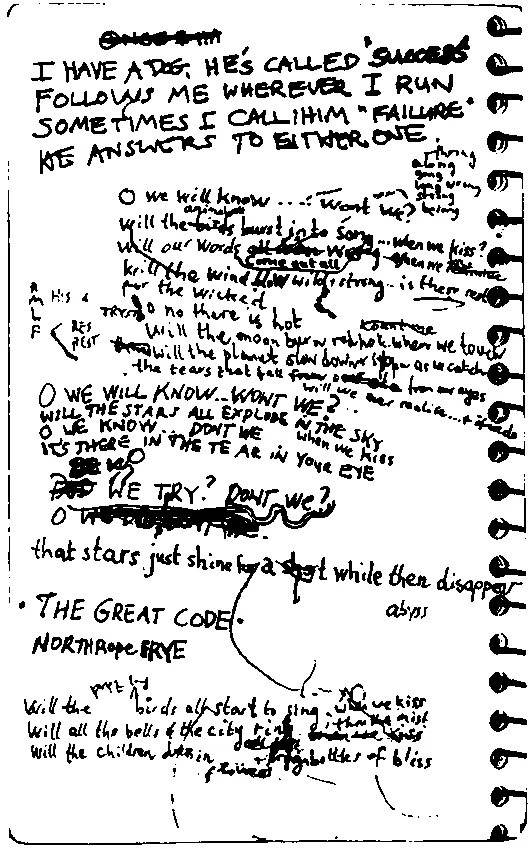 I HAVE A DOG. HE'S CALLED "SUCCESS"
FOLLOWS ME WHEREVER I RUN
SOMETIMES I CALL HIM "FAILURE"
HE ANSWERS TO EITHER ONE.
along
gong
long wrong
strong
belong
O we will know ....... Wont we?
Will the birds burst into song ... when we kiss?
will our words come out all wrong when we
will the wind blow wild & strong - is there
for the wicked
HIS &
RES
PEST
O no there is not
Will the moon burn red hot when we touch
will the planet slow down as we catch
the tears that fall from our eyes
will we ever realise
O WE WILL KNOW... WONT WE?
WILL THE STARS ALL EXPLODE IN THE SKY
O WE KNOW... DONT WE when we kiss
IT'S THERE IN THE TEAR IN YOUR EYE
WE TRY? DONT WE?
O WE
that stars just shine for a short while then disappear
abyss
• THE GREAT CODE •
NORTHROPE FRYE
Will the birds all start to sing when we kiss
Will all the bells of the city ring thru the mist
Will the children in bottles of bliss
flowers